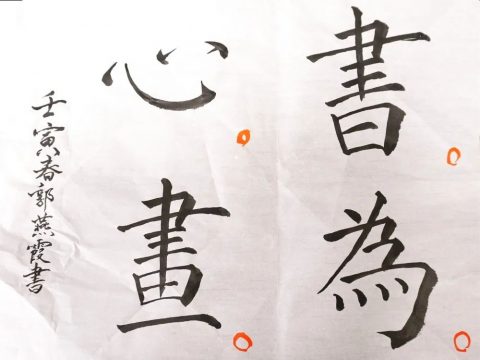 書為
心畫
壬寅春郭燕霞書